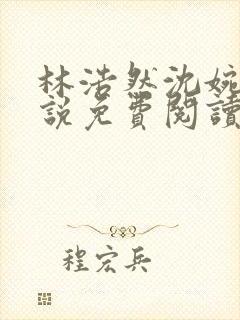 林浩然沈婉
說免費閱讀
程宏兵